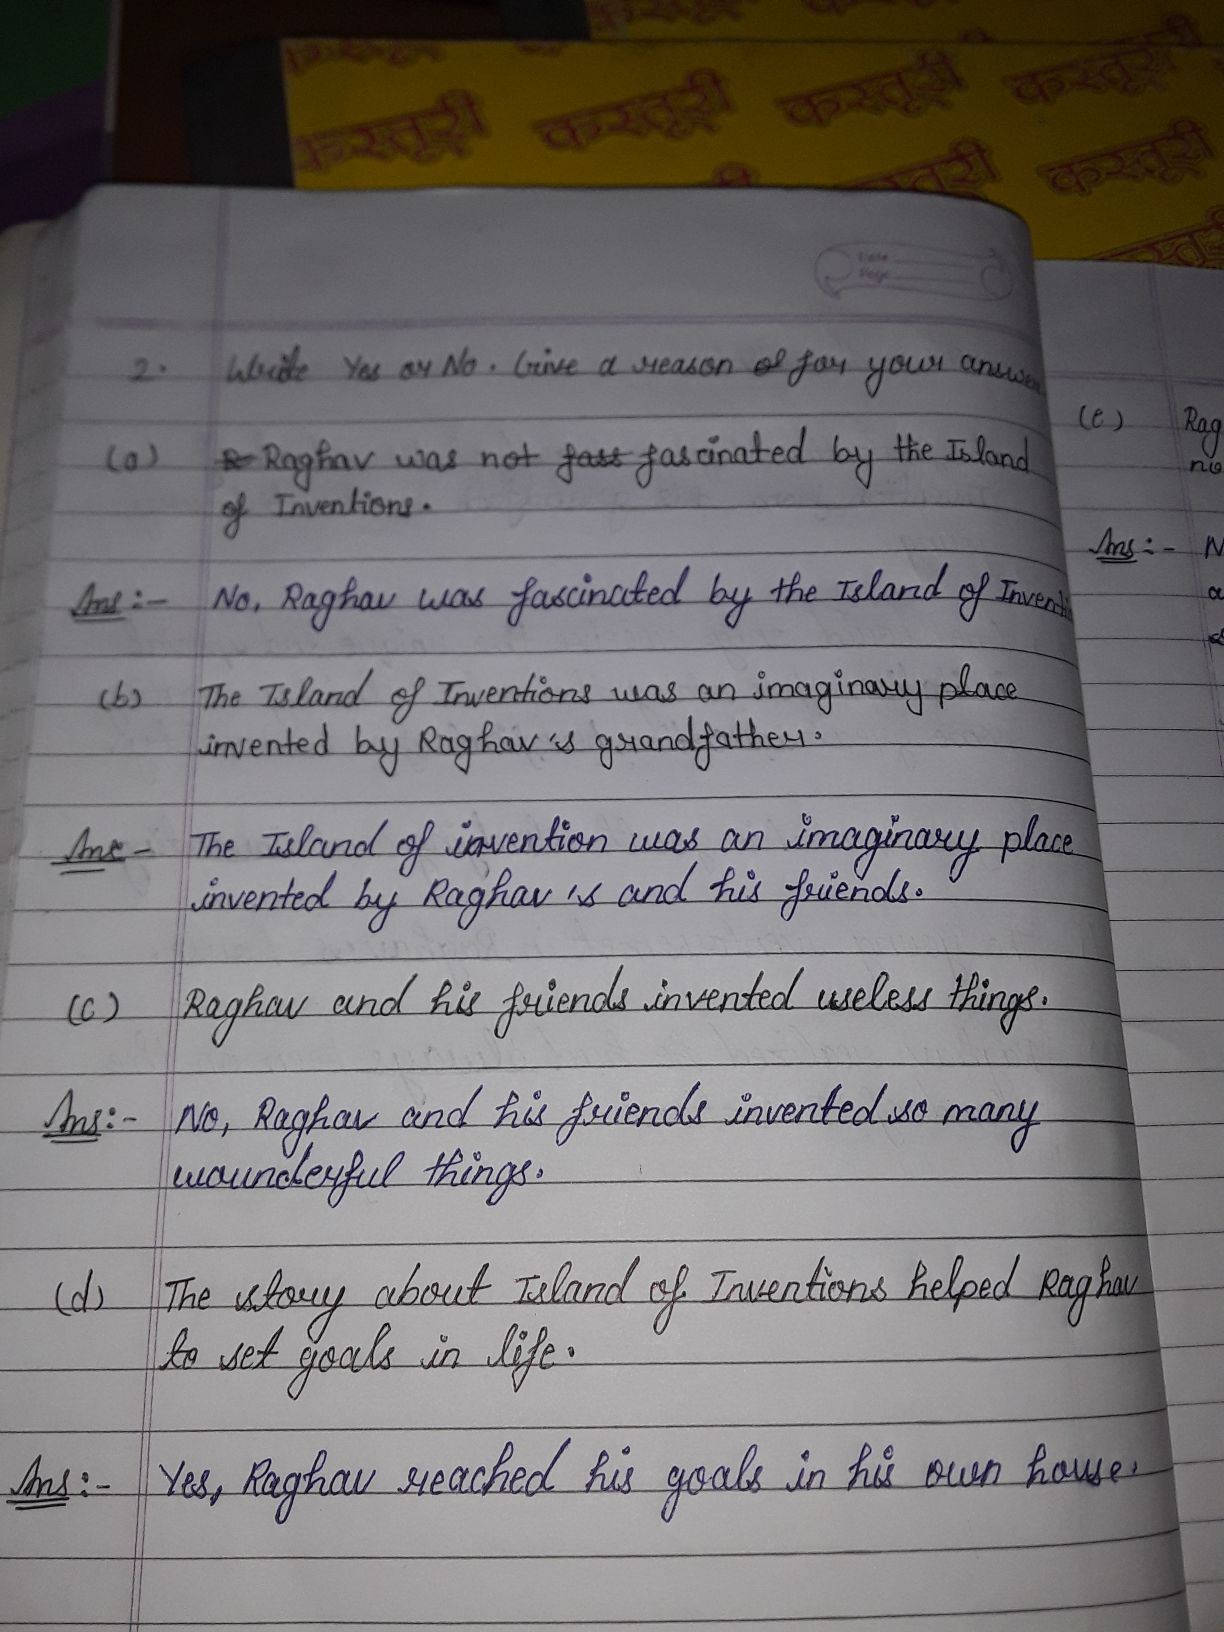 कस्तूरी कस्तूरी कस्तूरी कस्तूरी
कस्तूरी कस्तूरी
Date
Page
2. Write Yes or No. Give a reason of for your answer
(a) R Raghav was not fass fascinated by the Island
of Inventions.
Ans:- No, Raghav was fascinated by the Island of Inventi
(b) The Island of Inventions was an imaginary place
invented by Raghav's grandfather.
Ans - The Island of invention was an imaginary place
invented by Raghav's and his friends.
(c) Raghav and his friends invented useless things.
Ans:- No, Raghav and his friends invented so many
wounderful things.
(d) The story about Island of Inventions helped Raghav
to set goals in life.
Ans:- Yes, Raghav reached his goals in his own house.
(e) Rag
no
Ans:- N
a